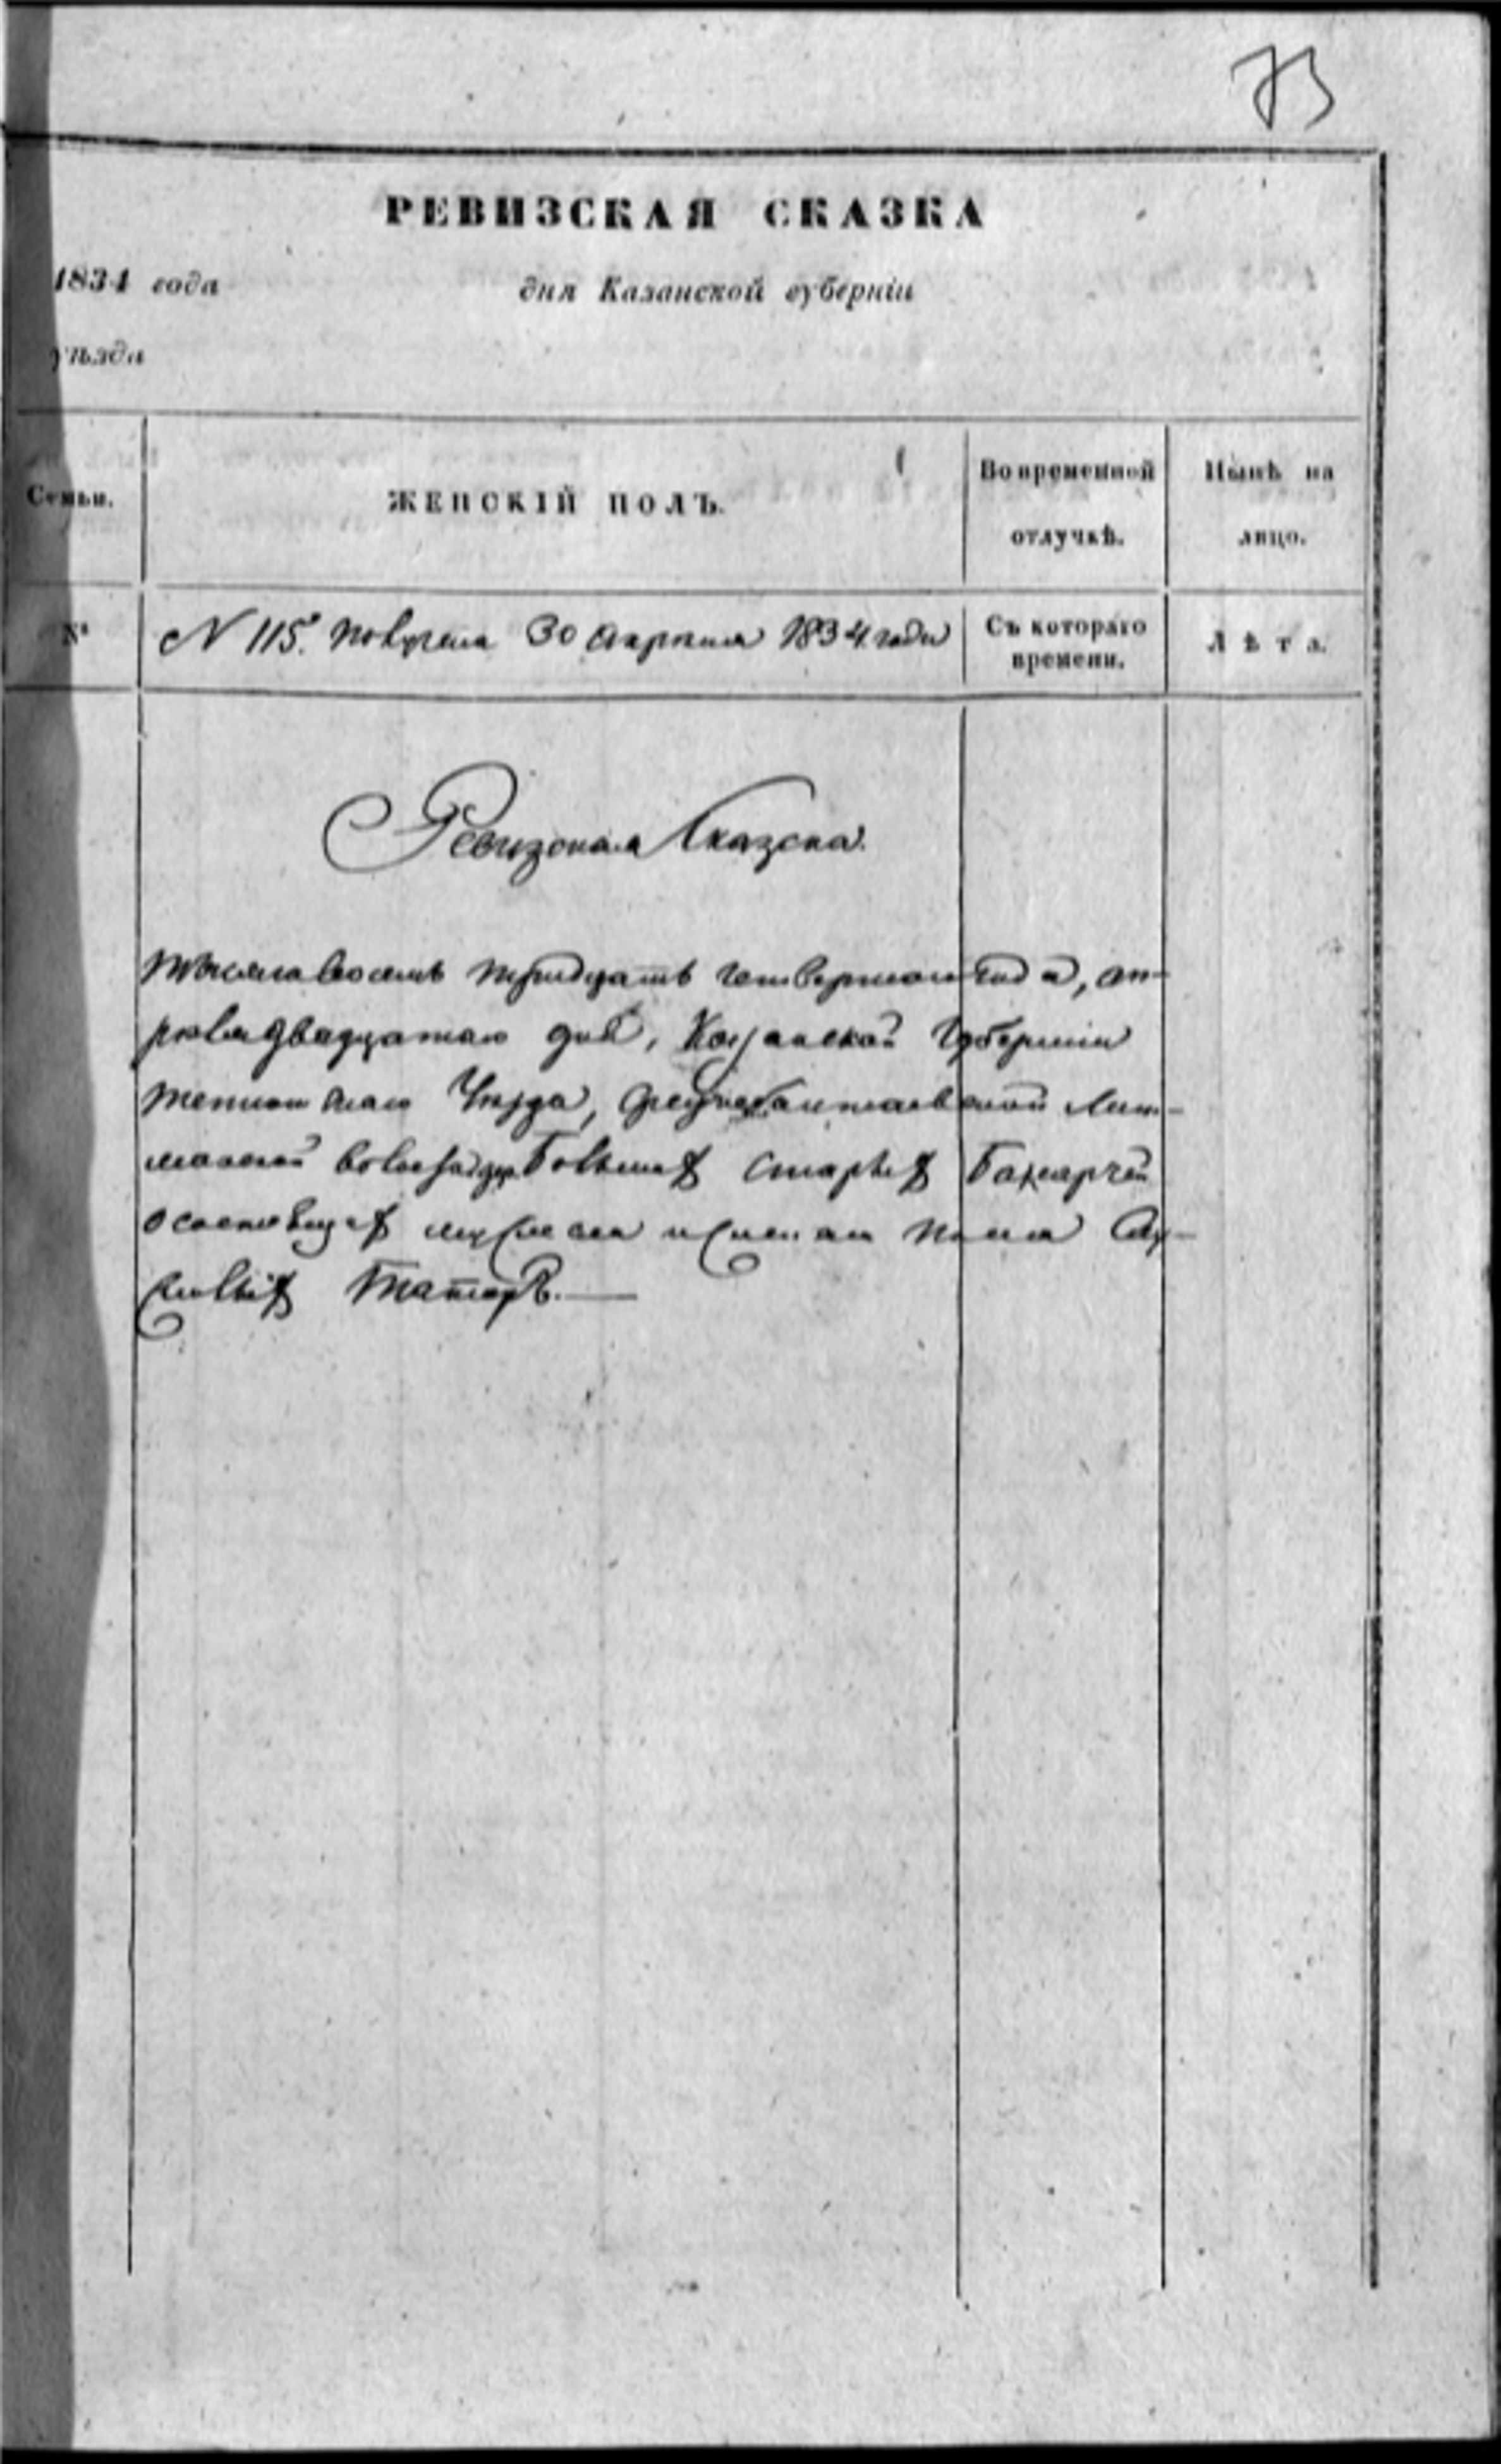 73
РЕВИЗСКАЯ СКАЗКА
1834 года дня Казанской губерніи
уѣзда
Семьи. ЖЕНСКІЙ ПОЛЪ. Во временной отлучкѣ. Нынѣ на лицо.
№ N 115. получена 30 апреля 1834 года Съ котораго времени. Лѣта.
Ревизская Сказска.
тысяча восемь тридцать четвертого года, ап-
реля двадцатаго дня, Казанской Губернии
Уезда,
волости дер. Больших Старых
о состоящих мужеска и женска пола Слу-
жилых Татаръ.